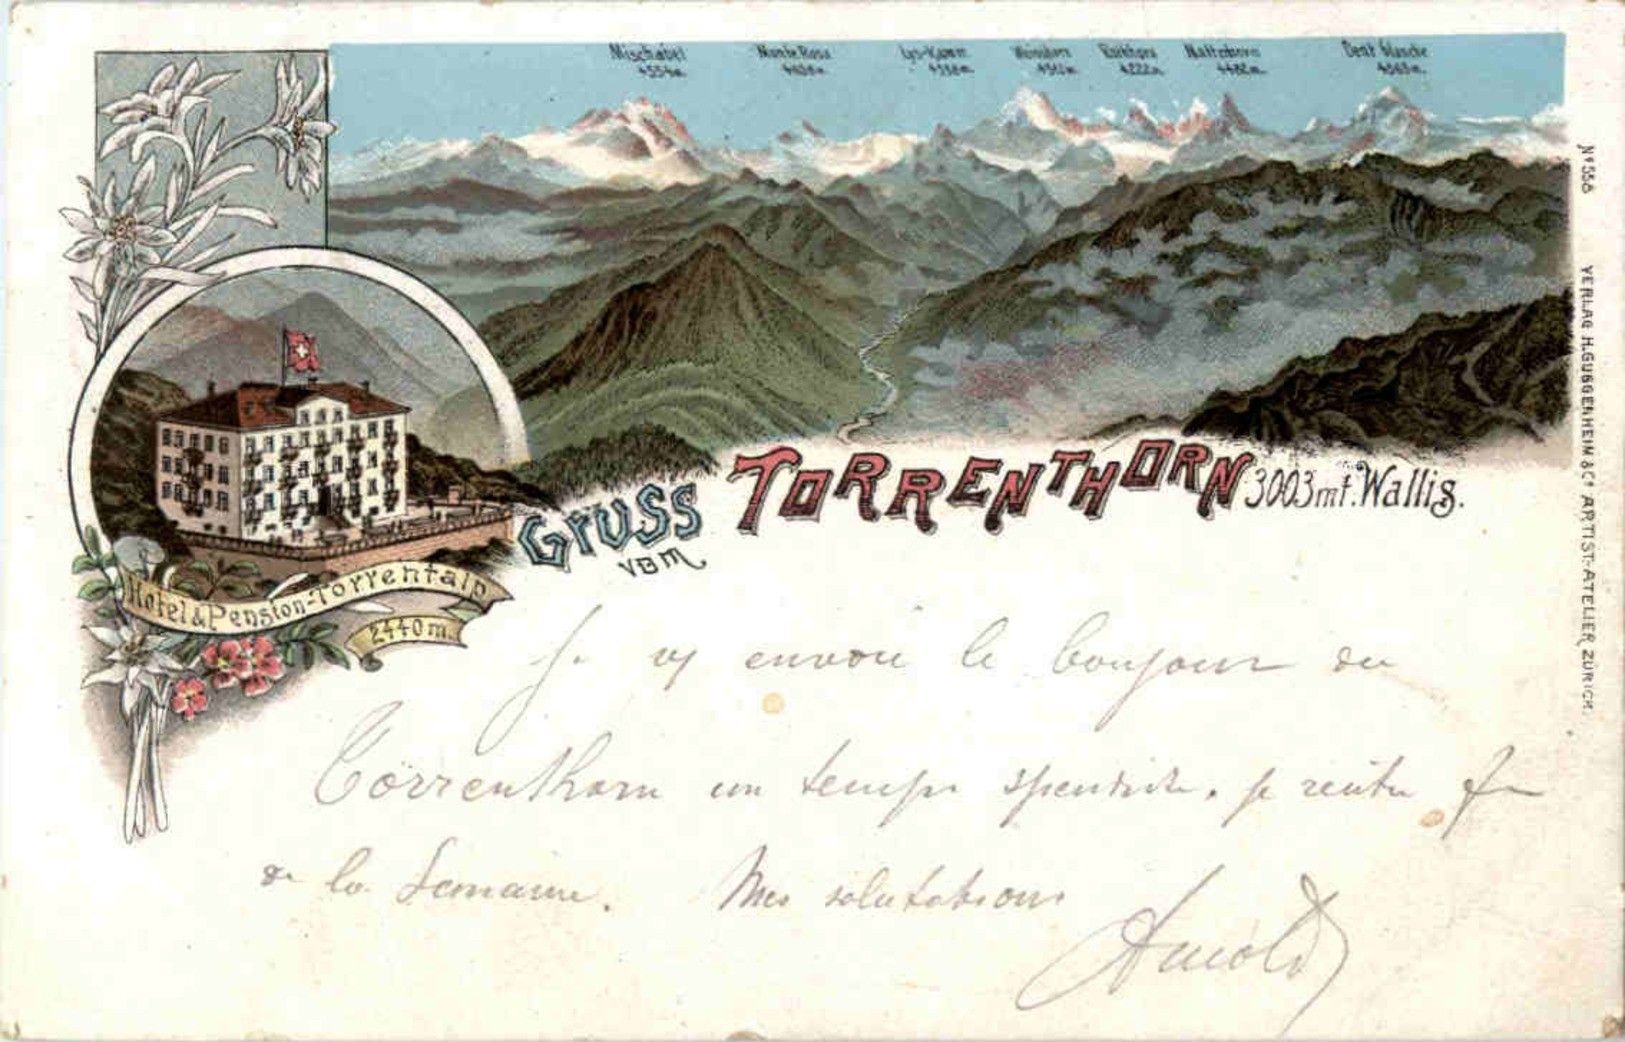 Mischabel Monte Rosa Lys-Kamm Weisshorn Rothhorn Matterhorn Dent blanche
4554m. 4638m. 4538m. 4512m. 4222m. 4482m. 4363m.
GRUSS
vom
TORRENTHORN 3003 mt. Wallis.
Hotel & Pension-Torrentalp
2440 m.
Nº 556 VERLAG H. GUGGENHEIM & Cº ARTIST-ATELIER ZÜRICH.
envoie le bonjour du
Torrenthorn un temps splendide. je rentre fin
de la semaine. Mes salutations
Arnold